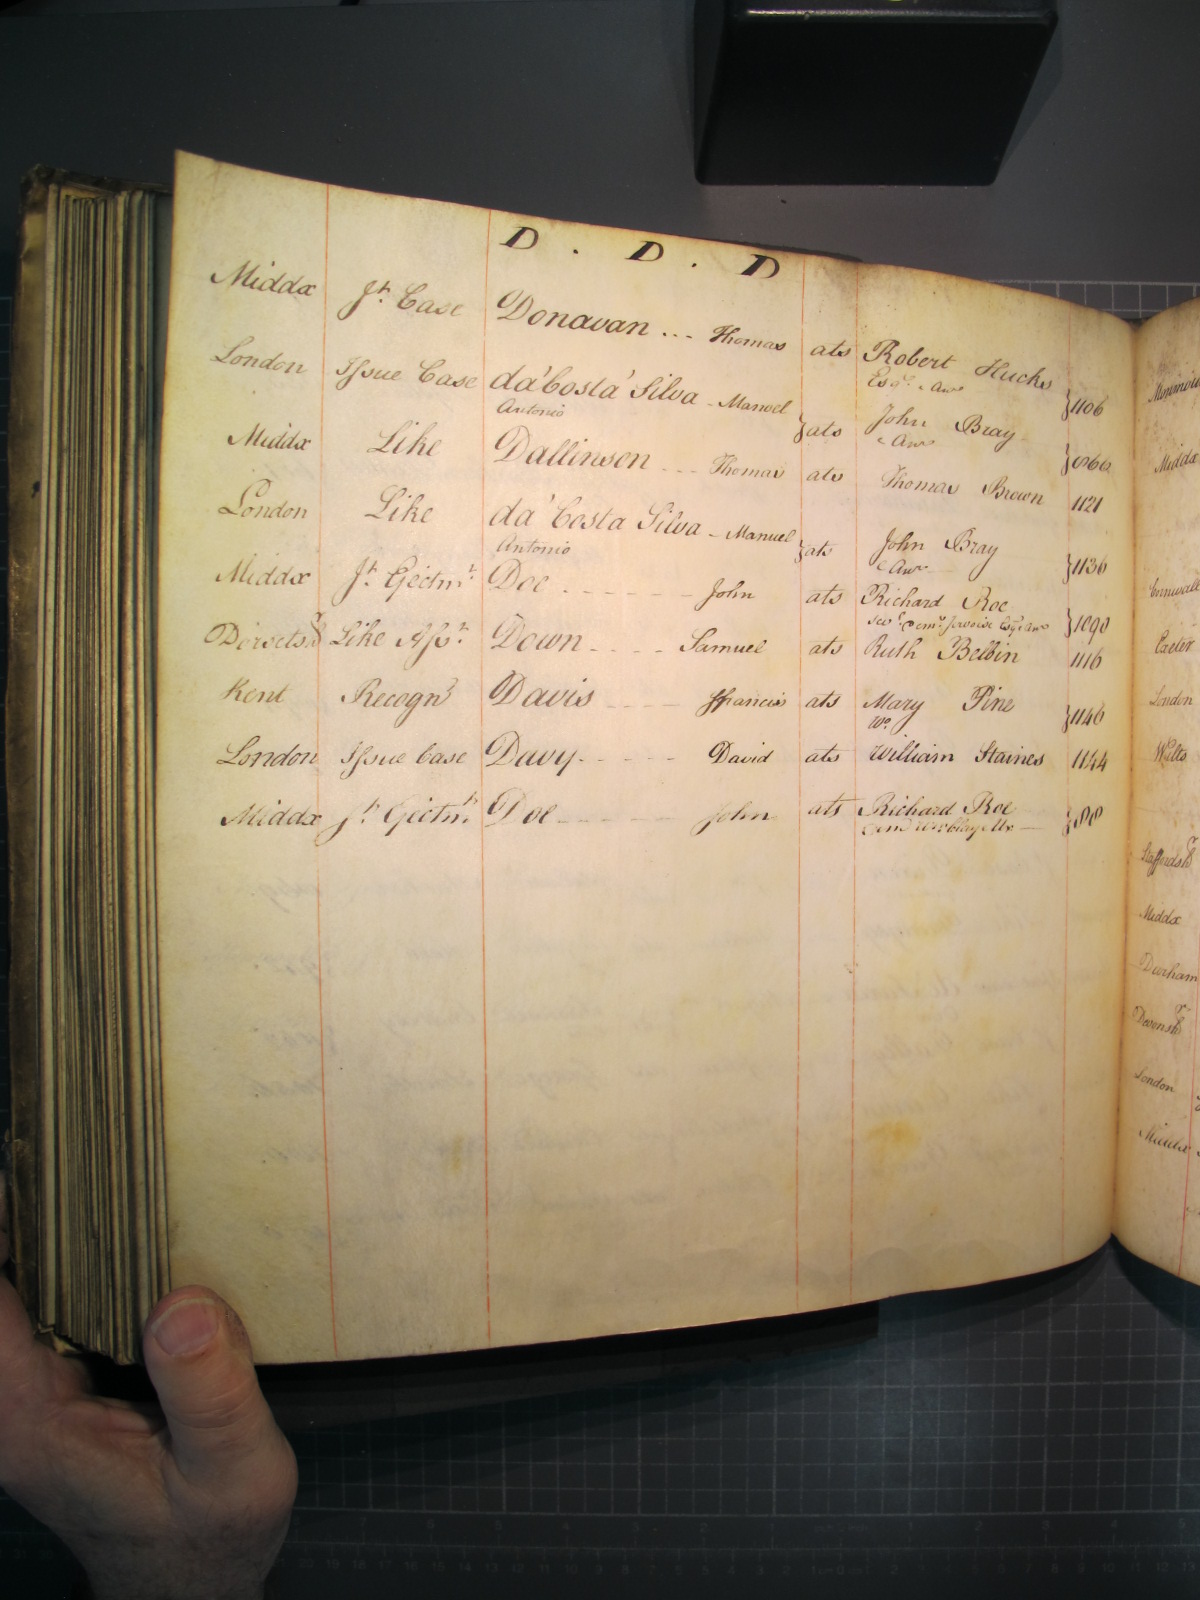 D . D . D
Middx Jt. Case Donavan ... Thomas ats Robert Hucks
Esqr. & Anr
}1106
London Issue Case da'Costa' Silva - Manoel
Antonio
}ats John Bray
& Anr
Middx Like Dallinson ... Thomas ats Thomas Brown 1121
London Like da' Costa Silva - Manuel
Antonio
}ats John Bray
& Anr
}1136
Middx Jt. Ejectmt. Doe ------- John ats Richard Roe
}1090
Dorsetshr Like Asst. Down ---- Samuel ats Ruth Belbin 1116
Kent Recogn Davis ---- ffrancis ats Mary Pine
Wo.
}1146
London Issue Case Davy ----- David ats William Staines 1144
Middx Jt. Ejectmt. Doe ------ John ats Richard Roe
Middx
Cornwall
Exeter
London
Wilts
Staffordshr
Middx
Durham
Devonshr
London
Middx